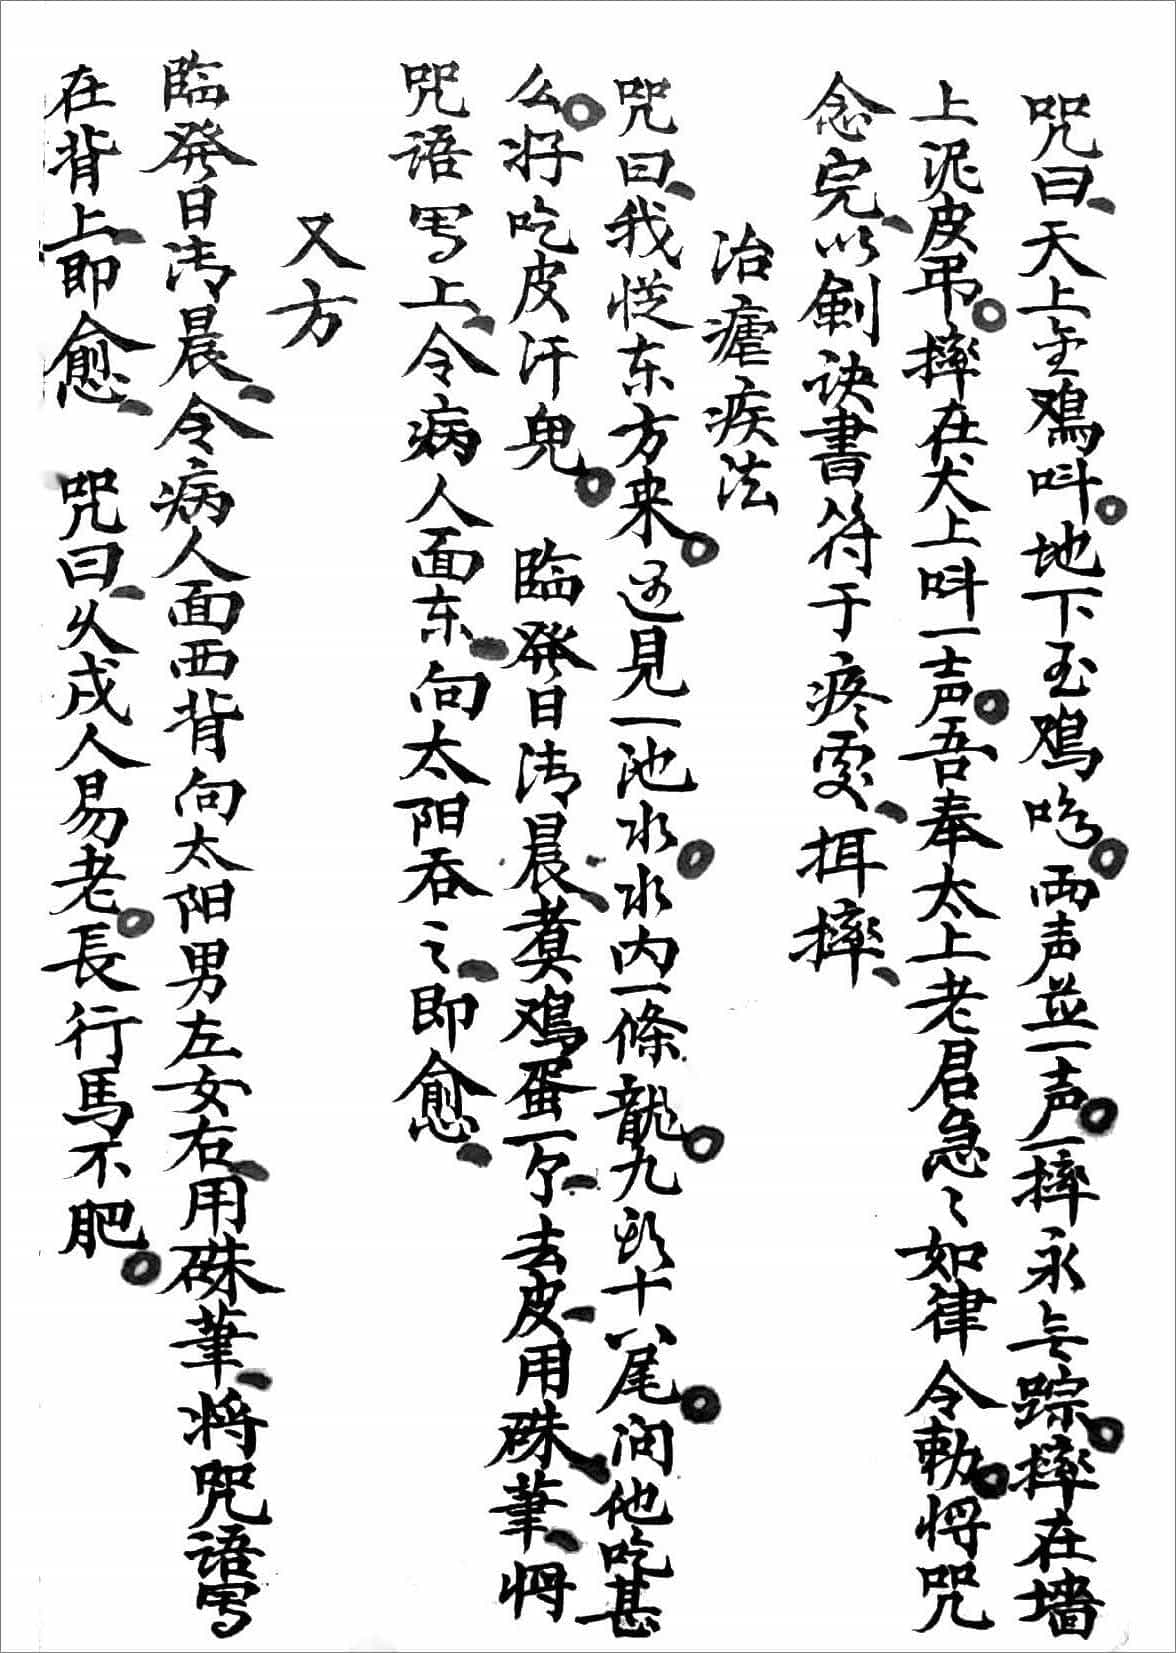 咒曰、天上金鸡叫。地下玉鸡吟。两声並一声。一摔永无踪。摔在墙
上泥皮弔。摔在犬上叫一声。吾奉太上老君急〻如律令勅。将咒
念完、以剑诀書符于疼处、摔、
治瘧疾法
咒曰、我従东方来。遇見一池水。水内一條龍。九头十八尾。问他吃甚
么。将吃皮汗鬼。 臨発日清晨、煮鸡蛋一个、去皮、用硃筆、将
咒语写上、令病人面东、向太阳吞之、即愈、
又方
臨発日清晨、令病人面西背向太阳男左女右、用硃筆、将咒语写
在背上、即愈、 咒曰、久戍人易老。長行馬不肥。